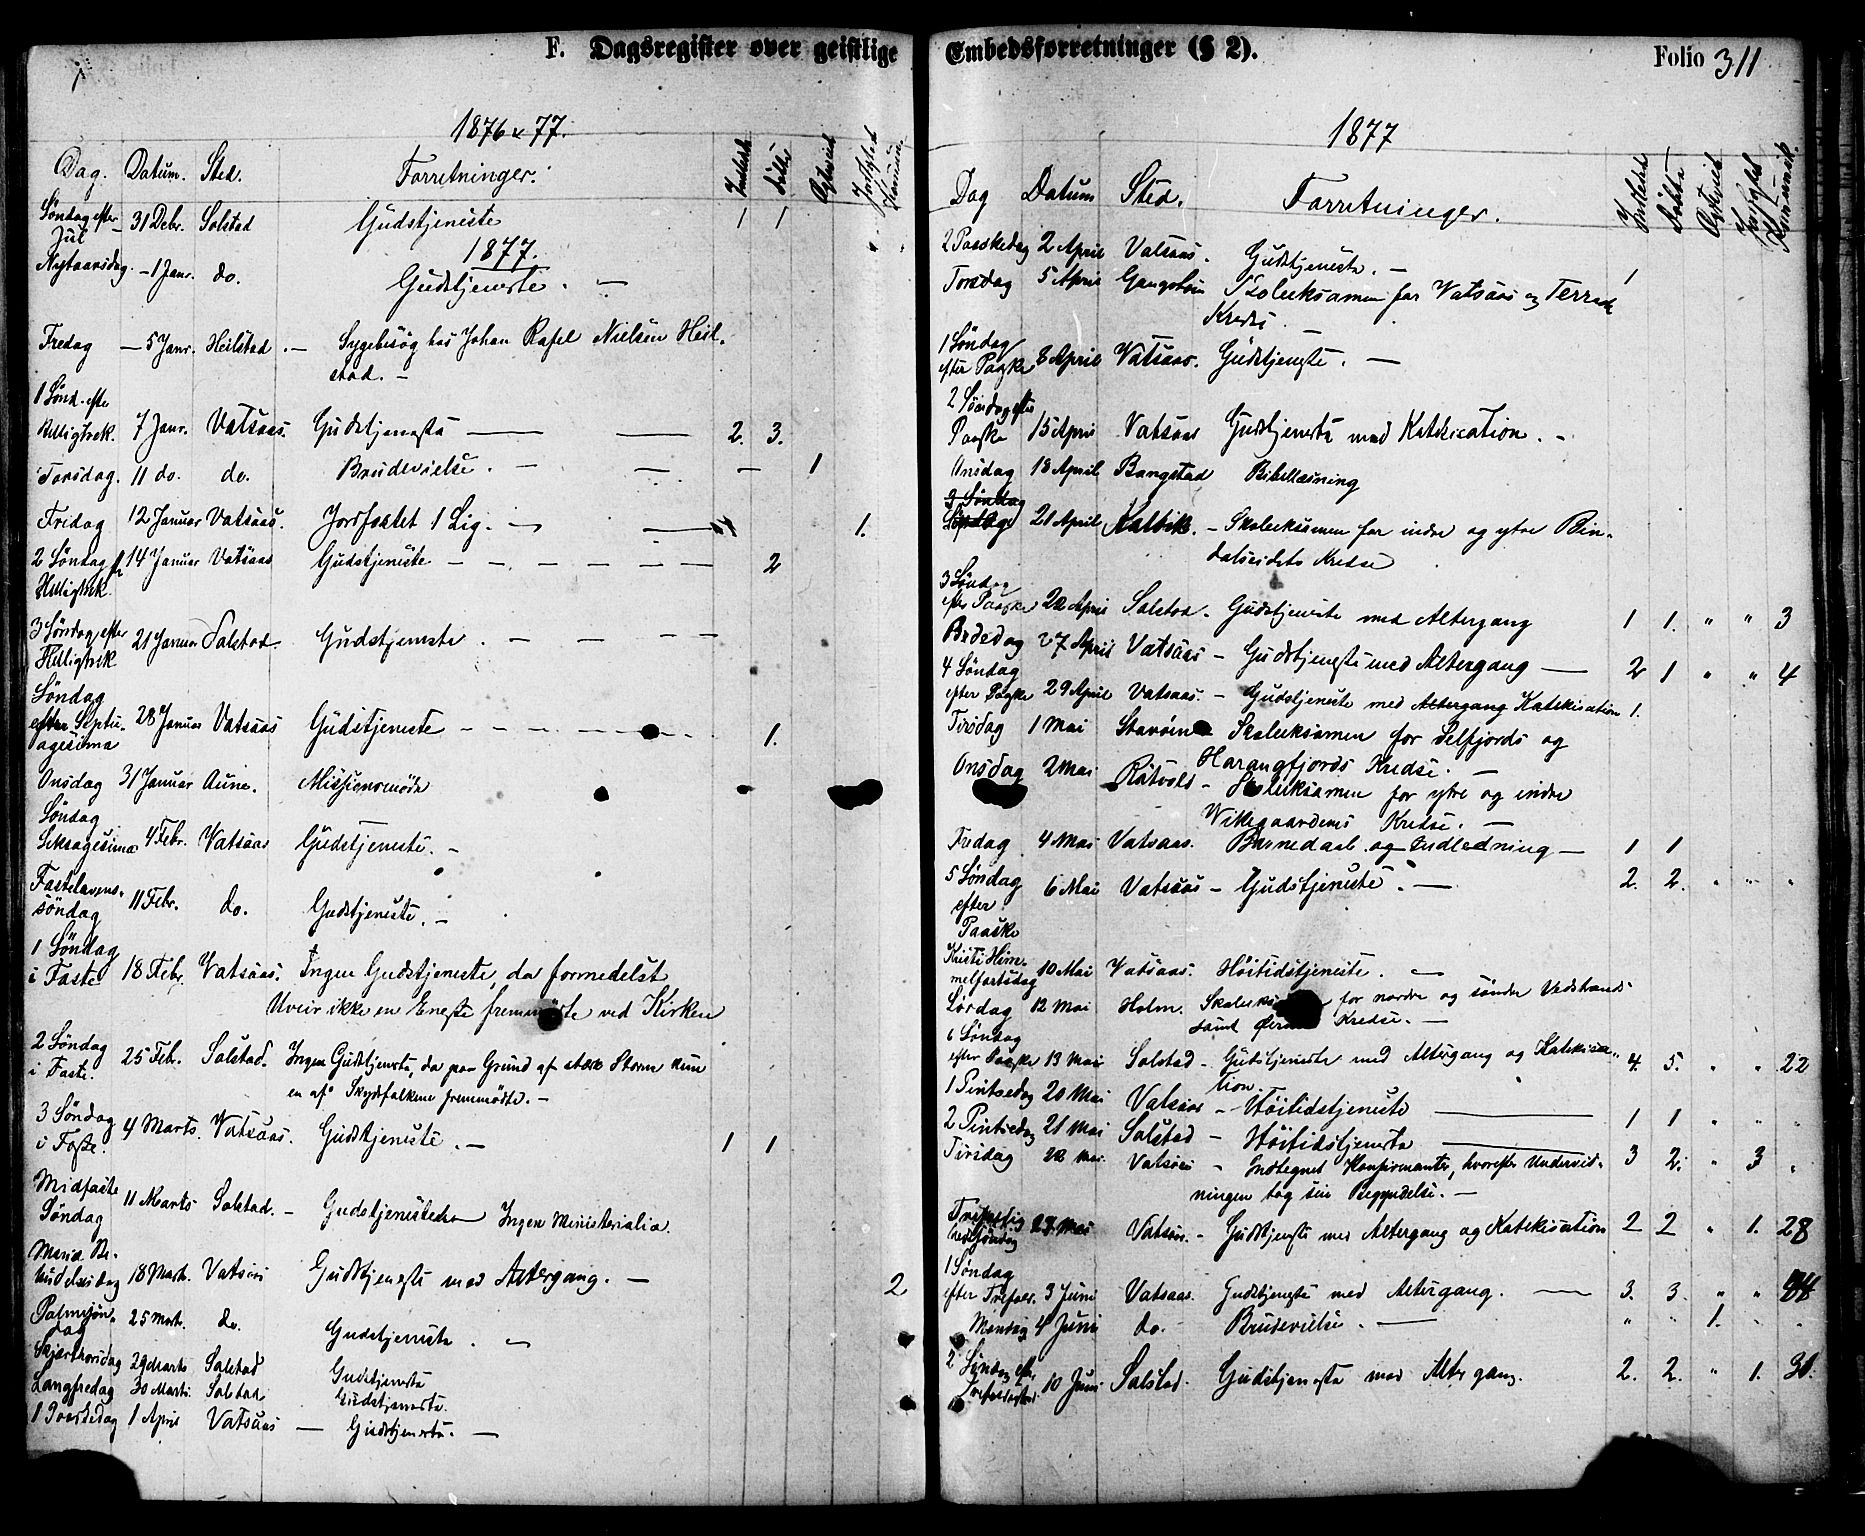 F. Dagsregister over geistlige
1876 & 77.
Dag. Datum. Sted. Forretninger. Indledte Døbte Egteviet Jordfæstet
Söndag efter Jul 31 Debr. Solstad Gudstjeneste 1 1
1877.
Nytaarsdag. 1 Janr. do. Gudstjeneste.
Fredag 5 Janr. Heilstad. Sygebesög hos Johan Rafel Nielsen Heil-
stad.
1 Sönd. efter
Helligtrek. 7 Janr. Vatsaas. Gudstjeneste 2. 3.
Torsdag. 11 do. do. Brudevielse. 1
Fridag 12 Januar Vatsaas. Jordfæstet 1 Lig. 1.
2 Söndag
Helligtrek. 14 Januar Vatsaas Gudstjeneste 2
3 Söndag efter
Helligtrek 21 Januar Solstad. Gudstjeneste.
Söndag
efter Septu-
agesima 28 Januar Vatsaas Gudstjeneste 1.
Onsdag 31 Januar Aune. Missionsmöde
Söndag
Seksagesima 4 Febr. Vatsaas Gudstjeneste.
Fastelavens-
söndag 11 Febr. do. Gudstjeneste.
1 Söndag
i Faste 18 Febr. Vatsaas. Ingen Gudstjeneste, da formedelst
Uveir ikke en Eneste fremmödte ved Kirken
2 Söndag
i Faste. 25 Feb. Solstad. Ingen Gudstjeneste, da paa Grund af stærk Storm kun
en af Skydsfolkene fremmödte.
3 Söndag
i Faste. 4 Marts. Vatsaas. Gudstjeneste. 1 1
Midfaste
Söndag 11 Marts Solstad. Gudstjeneste Ingen Ministerialia.
Mariæ Be-
budelsesdag 18 Marts. Vatsaas Gudstjeneste med Altergang. 2
Palmesön-
dag 25 Marts. do. Gudstjeneste.
Skjærthorsdag 29 Marts Solstad Gudstjeneste
Langfredag 30 Marts. Solstad. Gudstjeneste.
1 Paaskedag 1 April Vatsaas Gudstjeneste.
Embedsforretninger (§ 2). Folio 311
1877
Dag Datum Sted. Forretninger. Indledte Döbte Egteviet
2 Paaskedag 2 April Vatsaas. Gudstjeneste. 1
Torsdag 5 April Skoleeksamen for Vatsaas og Terraak
Kredse.
1 Söndag
efter Paaske 8 April Vatsaas. Gudstjeneste.
2 Söndag efter
Paaske 15 April Vatsaas Gudstjeneste med Katekisation.
Onsdag 18 April Bangstad Bibellæsning
3 Söndag
21 April Kalvik. Skoleeksamen for indre og ytre Bin-
dalseidets Kredse
3 Söndag
efter Paaske 22 April Solstad. Gudstjeneste med Altergang 1 1. " " 3
Bededag 27 April Vatsaas Gudstjeneste med Altergang 2 1 " " 4
4 Söndag
efter Paaske 29 April Vatsaas. Gudstjeneste med Altergang Katekisation 1.
Tirsdag 1 Mai Skoleeksamen for Selfjords og
Harangfjords Kredse.
Onsdag 2 Mai Skoleeksamen for ytre og indre
Vikegaardenes Kredse.
Fredag 4 Mai Vatsaas. Barnedaab og Indledning 1 1
5 Söndag
efter
Paaske 6 Mai Vatsaas Gudstjeneste. 2. 2. " " "
Kristi Him-
melfartsdag 10 Mai Vatsaas. Höitidstjeneste.
Lørdag 12 Mai Holm. for nordre og söndre
samt Kredse.
6 Söndag
efter Paaske 13 Mai Solstad Gudstjeneste med Altergang og Katekisa-
tion. 4. 5. " " 22
1 Pintsedag 20 Mai Vatsaas Höitidstjeneste 1 1 " " "
2 Pintsedag 21 Mai Solstad Höitidstjeneste
Tirsdag 22 Mai. Vatsaas Indtegnet Konfirmanter, hvorefter Undervis-
ningen tog sin Begyndelse. 3 2. " 3 "
Trefoldig
hedssöndag 27 Mai Vatsaas. Gudstjeneste med Altergang og Katekisation 2 2 " 1. 28
1 Söndag
efter Trefold. 3 Juni Vatsaas. Gudstjeneste med Altergang. 3. 3. " "
Mandag 4 Juni do. Brudevielse. " " 1. " "
2 Söndag efter
10 Juni Solstad. Gudstjeneste med Altergang. 2. 2. " 1.